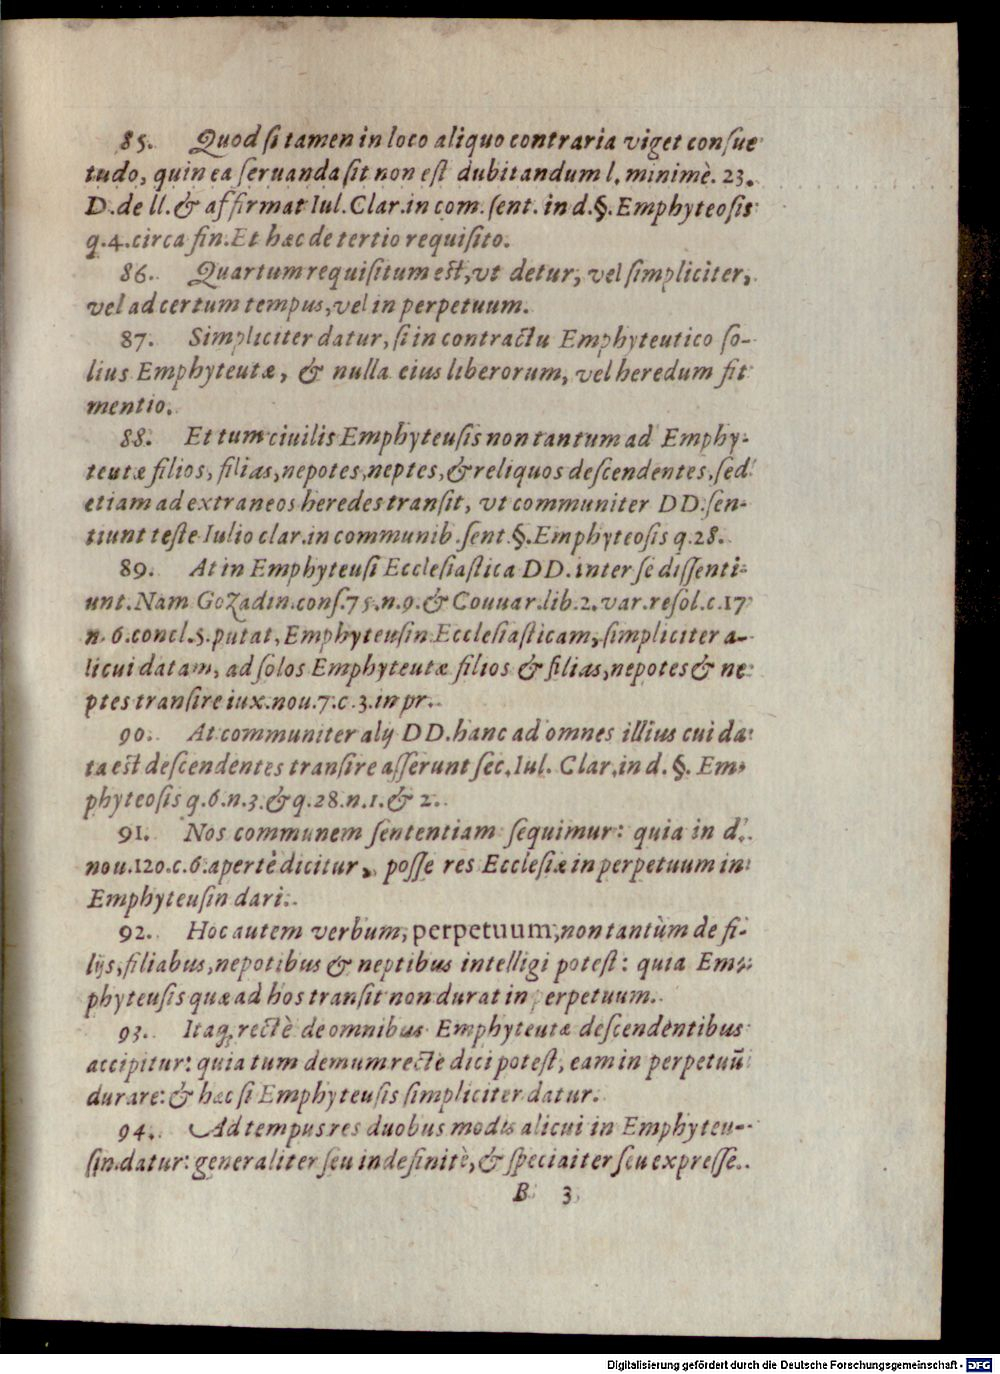 85. Quod si tamen in loco aliquo contraria viget consue
tudo, quin ea seruanda sit non est dubitandum l. minimè. 23.
D. de ll. & affirmat Iul. Clar. in com. sent. in d. §. Emphyteosis
q. 4. circa fin. Et hæc de tertio requisito.
86. Quartum requisitum est, vt detur, vel simpliciter,
vel ad certum tempus, vel in perpetuum.
87. Simpliciter datur, si in contractu Emphyteutico so-
lius Emphyteutæ, & nulla eius liberorum, vel heredum fit
mentio.
88. Et tum ciuilis Emphyteusis non tantum ad Emphy-
teutæ filios, filias, nepotes, neptes, & reliquos descendentes, sed
etiam ad extraneos heredes transit, vt communiter DD. sen-
tiunt teste Iulio clar. in communib. sent. §. Emphyteosis q. 28.
89. At in Emphyteusi Ecclesiastica DD. inter se dissenti-
unt. Nam Gozadin. cons. 75. n. 9. & Couuar. lib. 2. var. resol. c. 17
n. 6. concl. 5. putat, Emphyteusin Ecclesiasticam, simpliciter a-
licui datam, ad solos Emphyteutæ filios & filias, nepotes & ne
ptes transire iux. nou. 7. c. 3. in pr.
90. At communiter alij DD. hanc ad omnes illius cui da
ta est descendentes transire asserunt sec. Iul. Clar. in d. §. Em-
phyteosis q. 6. n. 3. & q. 28. n. 1. & 2.
91. Nos communem sententiam sequimur: quia in d.
nou. 120. c. 6. apertè dicitur, posse res Ecclesiæ in perpetuum in
Emphyteusin dari.
92. Hoc autem verbum, perpetuum, non tantùm de fi-
lijs, filiabus, nepotibus & neptibus intelligi potest: quia Em-
phyteusis quæ ad hos transit non durat in perpetuum.
93. Itaq; rectè de omnibus Emphyteutæ descendentibus
accipitur: quia tum demum rectè dici potest, eam in perpetuũ
durare: & hæc si Emphyteusis simpliciter datur.
94. Ad tempus res duobus modis alicui in Emphyteu-
sin datur: generaliter seu indefinitè, & speciaiter seu expresse.
B 3
Digitalisierung gefördert durch die Deutsche Forschungsgemeinschaft - DFG